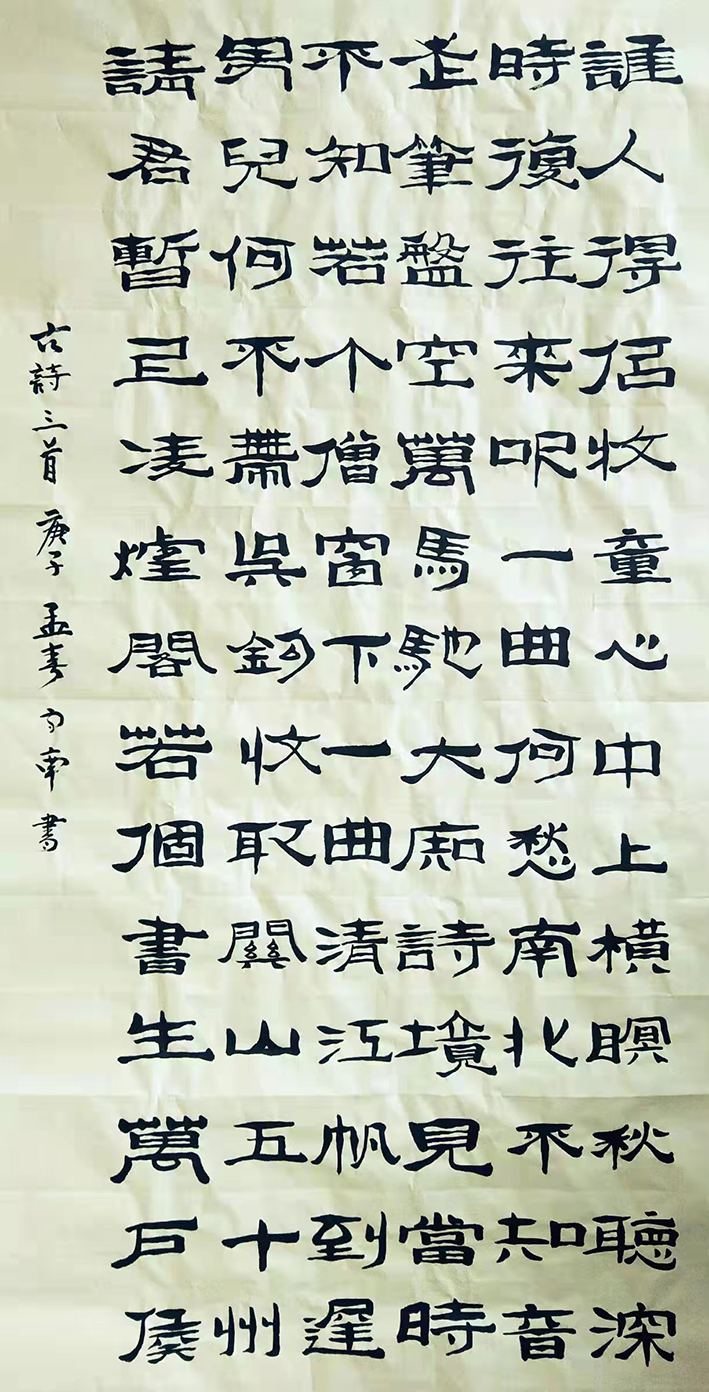 誰人得佀牧童心中上橫瞑秋聽深
時復往來吹一曲何愁南北不知音
老筆盤空萬馬馳大痴詩境見當時
不知若个僧窗下一曲清江帆到遲
男兒何不帶吳鉤收取關山五十州
請君暫上凌煙閣若個書生萬戶侯
古詩三首 庚子孟春 南書